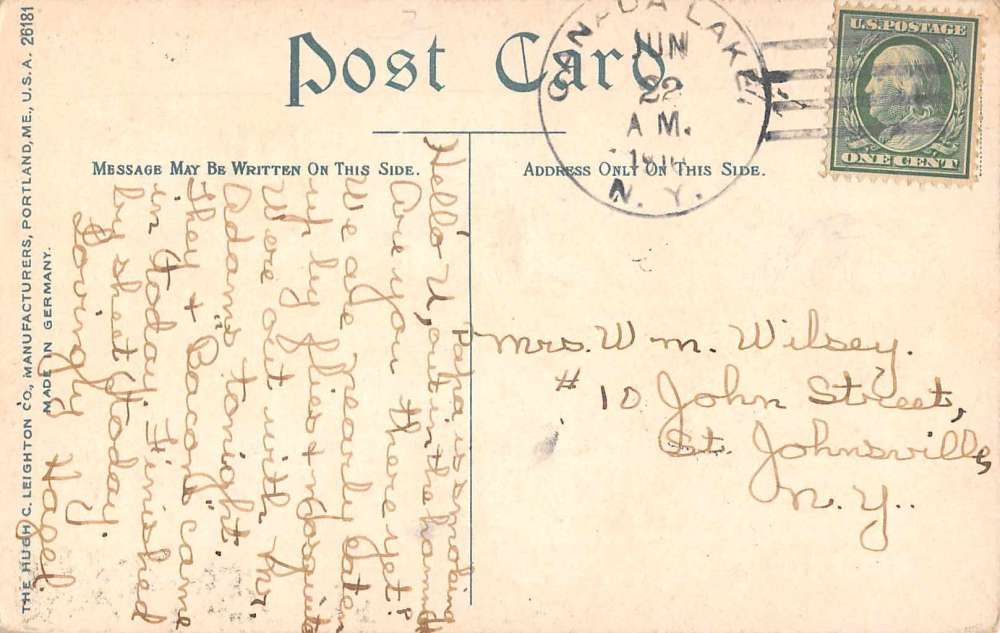 Post Card
MESSAGE MAY BE WRITTEN ON THIS SIDE.
ADDRESS ONLY ON THIS SIDE.
THE HUGH C. LEIGHTON CO., MANUFACTURERS, PORTLAND, ME., U.S.A. 26181
MADE IN GERMANY.
CANADA LAKE,
JUN
22
A M.
N. Y.
U.S. POSTAGE
ONE CENT
Hello U, papa is smoking
out in the hammock
Are you there yet?
We are nearly eaten
up by flies +
Were out with Mr.
Adams tonight.
They + "Bacons" came
in today. Finished
by sheet today.
Lovingly Hazel.
Mrs. Wm. Wilsey.
# 10 John Street,
St. Johnsville,
N. Y.